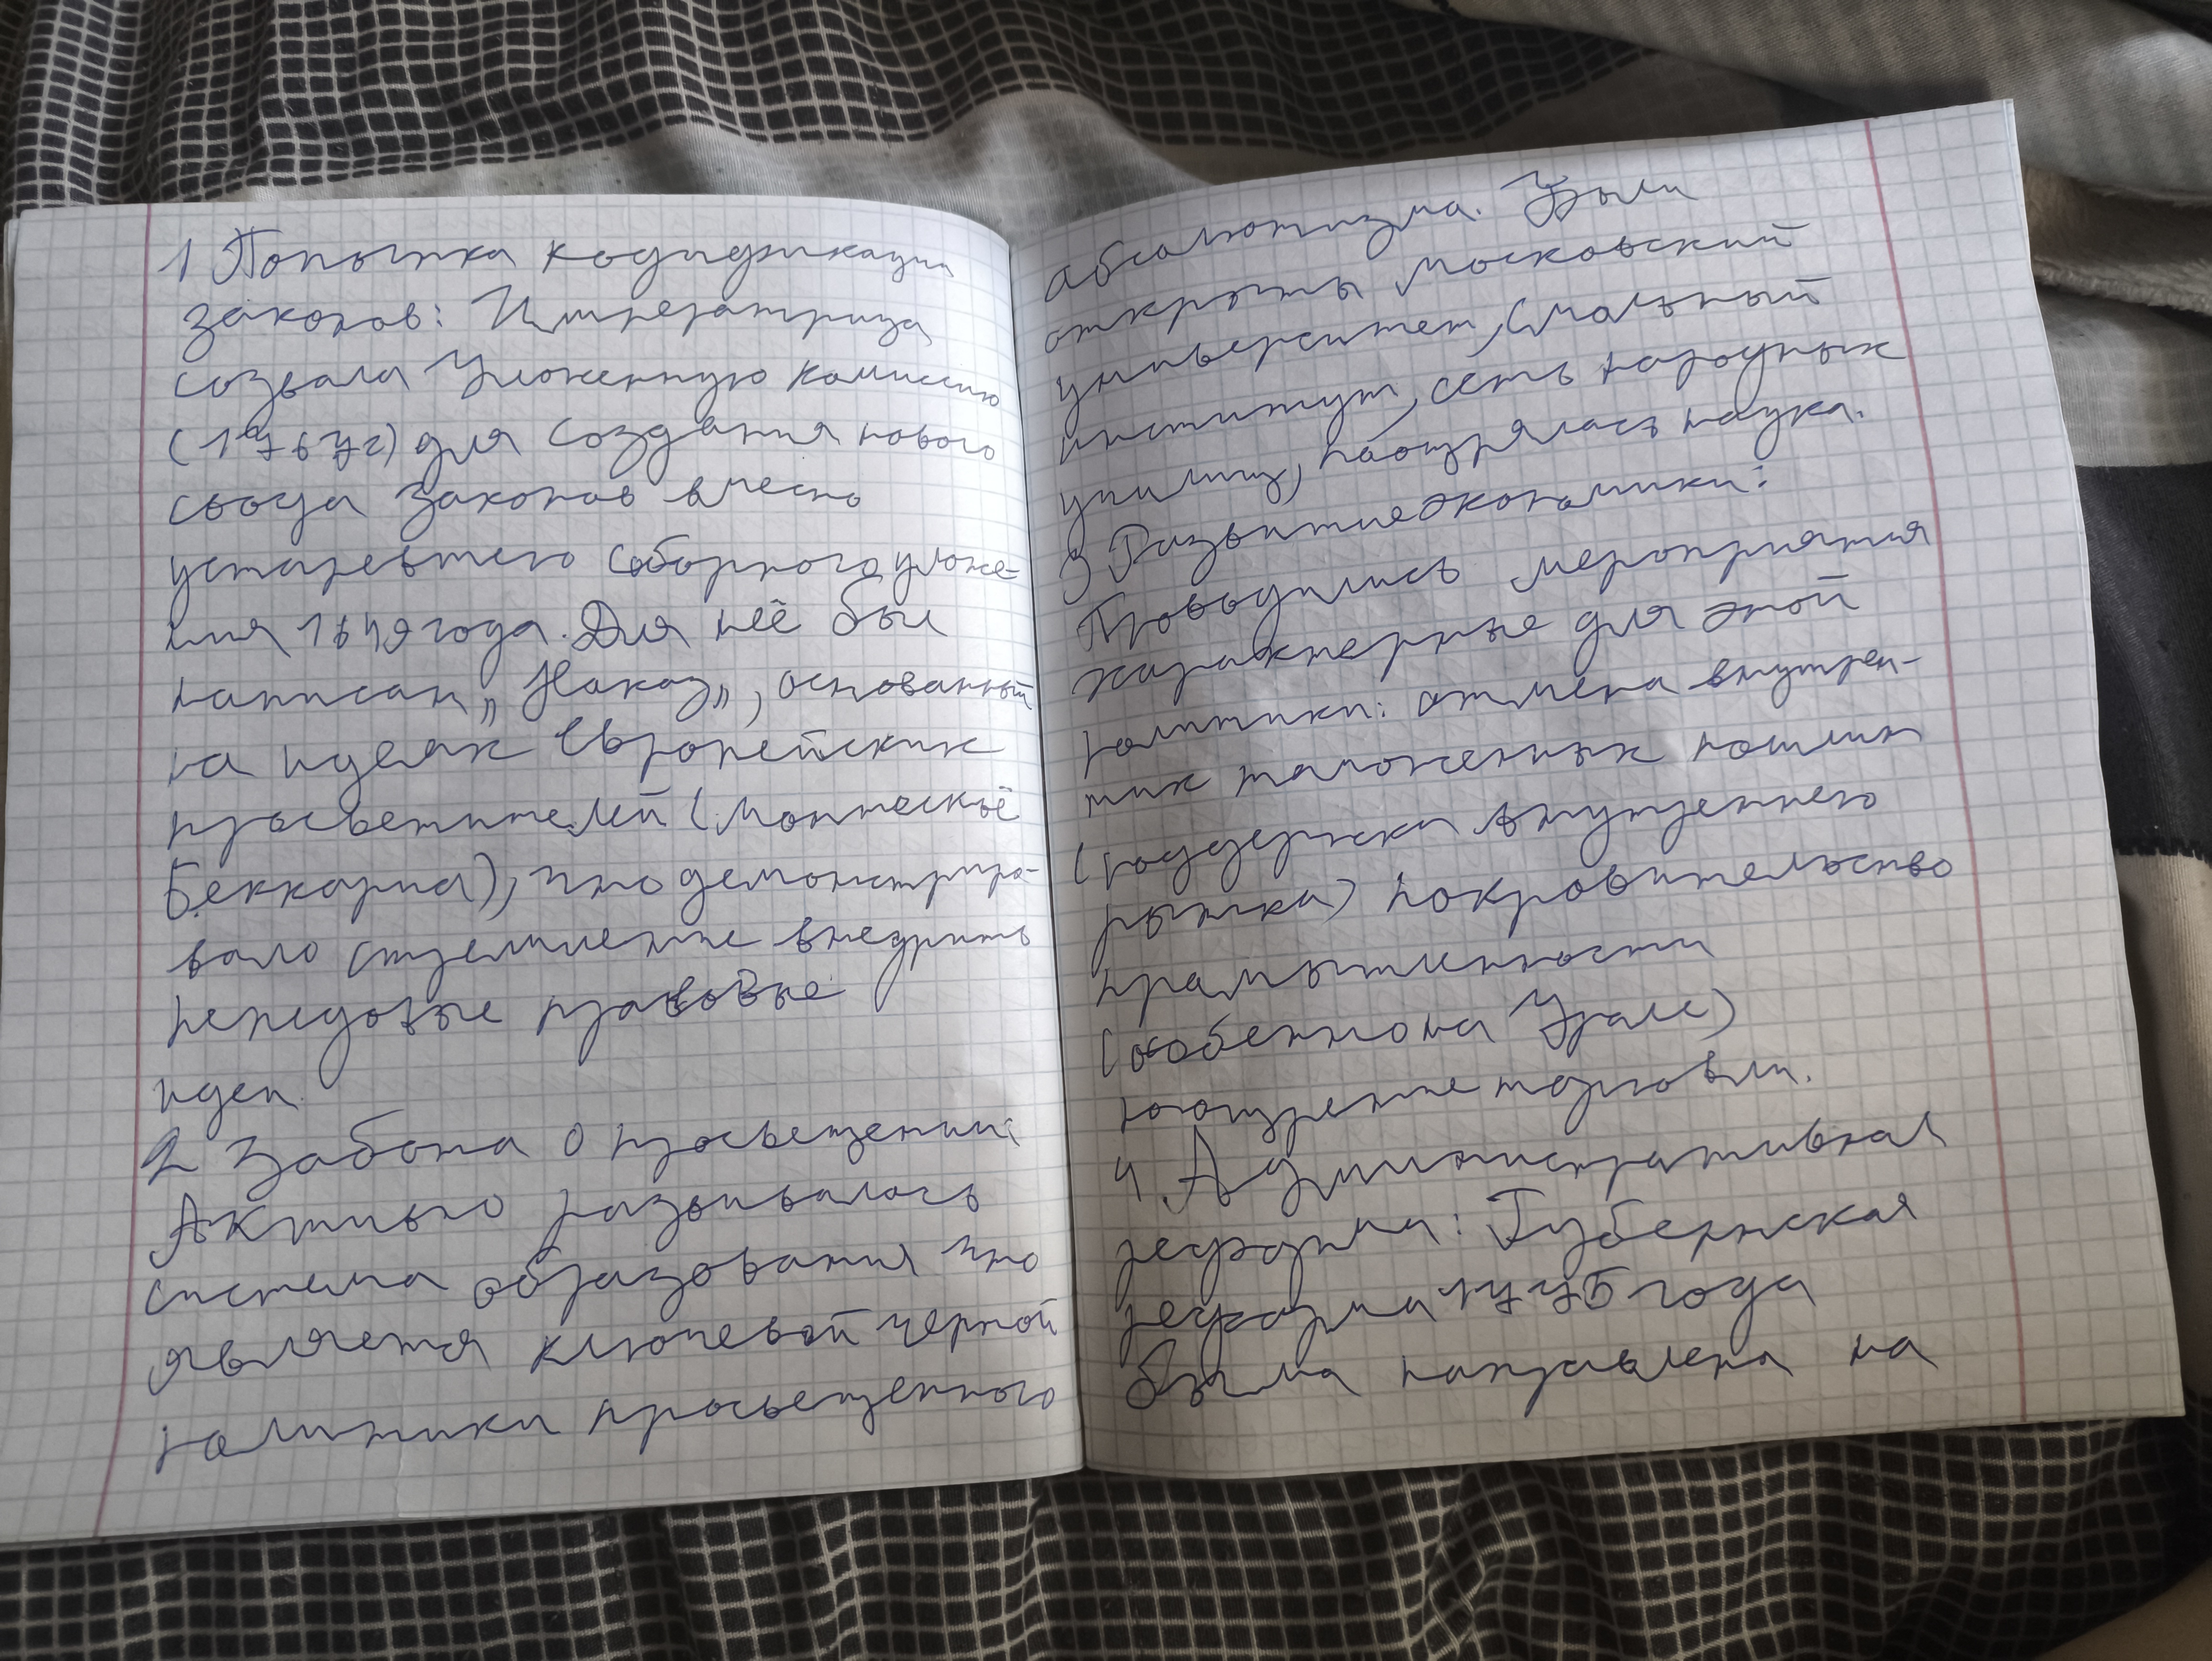 1 Попытка кодификации
законов: Императрица
созвала Уложенную комиссию
(1767г) для создания нового
свода законов вместо
устаревшего Соборного уложе-
ния 1649 года. Для неё был
написан „Наказ„, основанный
на идеях Европейских
просветителей (Монтескьё
Беккариа), что демонстриро-
вало стремление внедрить
передовые правовые
идеи
2 Забота о просвещении:
Активно развивалась
система образования что
является ключевой чертой
политики просвещенного
абсолютизма. Были
открыты Московский
университет, Смольный
институт, сеть народных
училищ, паощрялась наука.
3 Развитие экономики:
Проводились мероприятия
характерные для этой
политики: отмена внутрен-
них таможенных пошлин
(поддержка внутреннего
рынка) покровительство
прамышленности
(особенно на Урале)
поощрение торговли.
4 Административная
реформа: Губернская
реформа 1775 года
была направлена на